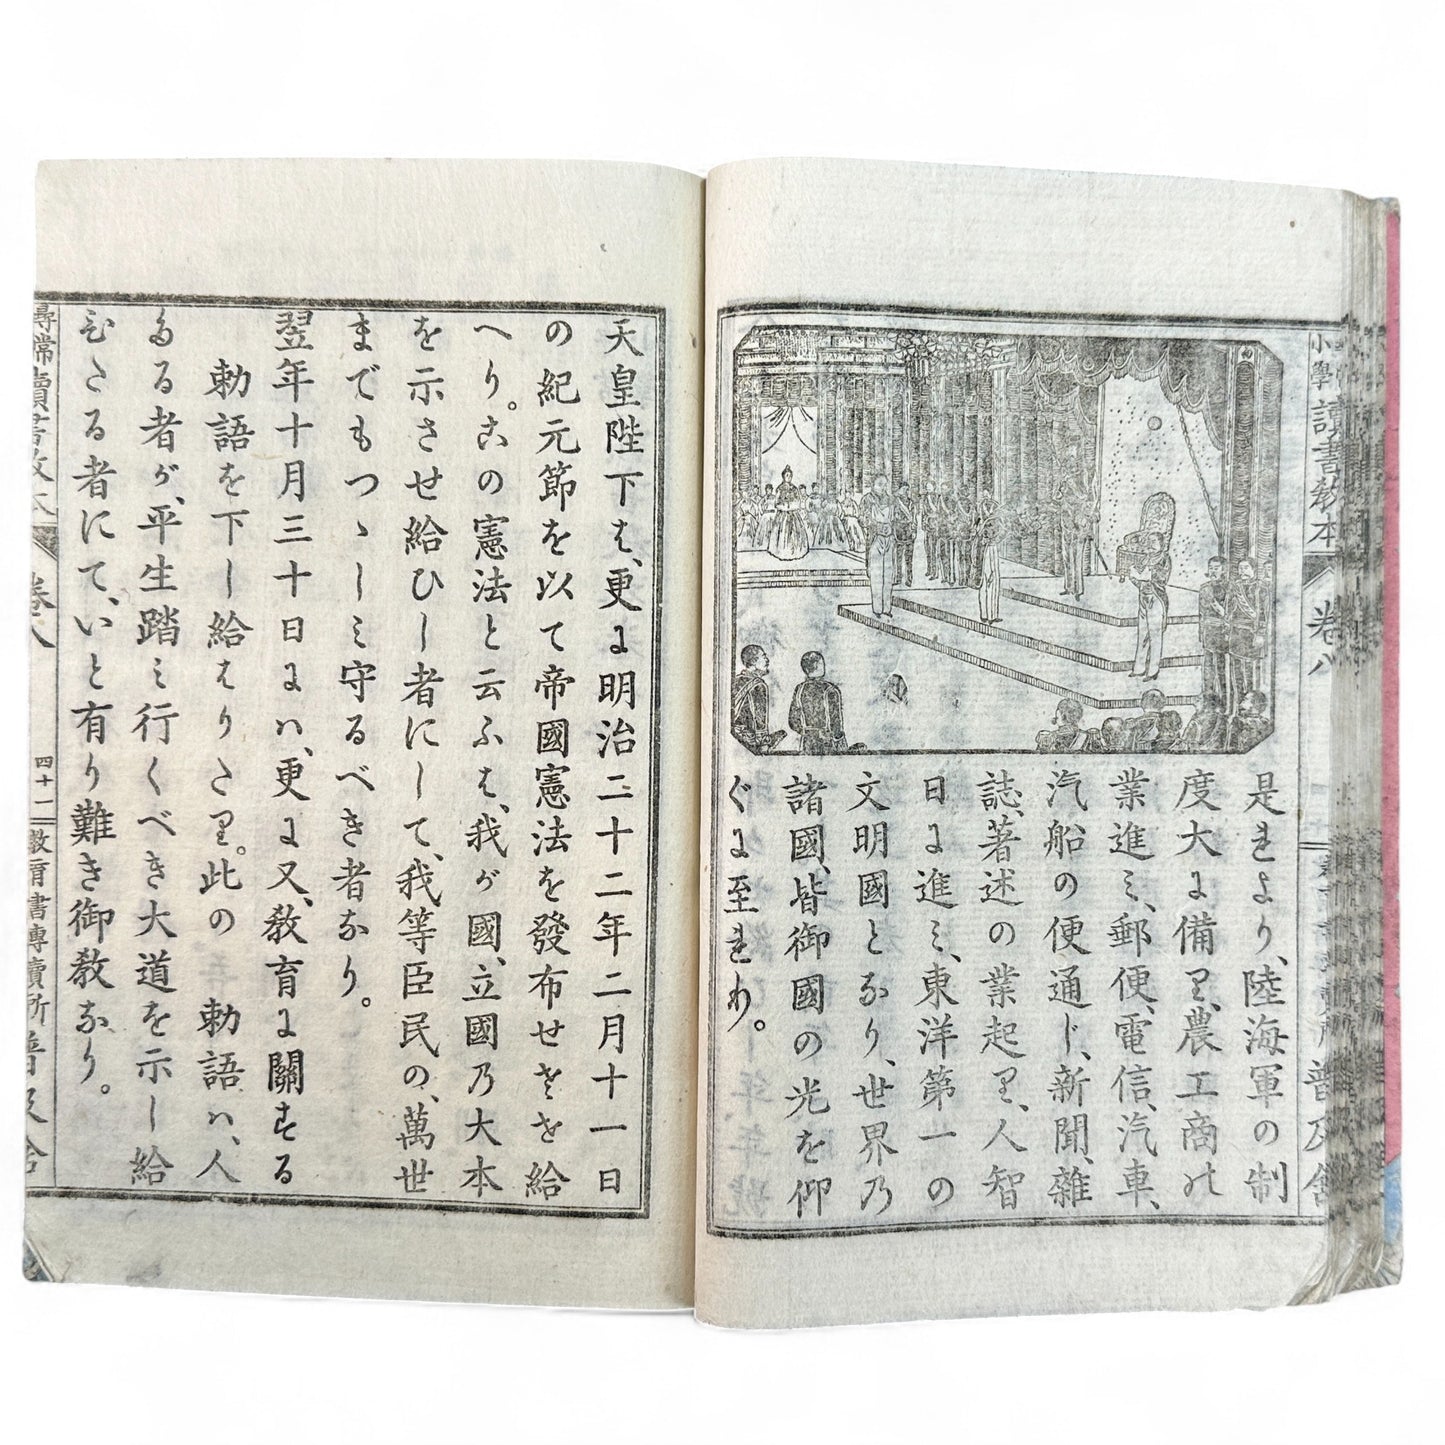 小學讀書教本
卷八
普及舍
是れより、陸海軍の制
度大に備り、農工商の
業進み、郵便、電信、汽車、
汽船の便通じ、新聞、雜
誌、著述の業起り、人智
日に進み、東洋第一の
文明國となり、世界乃
諸國、皆御國の光を仰
ぐに至れり。
天皇陛下は、更に明治二十二年二月十一日
の紀元節を以て帝國憲法を發布せさせ給
へり。この憲法と云ふは、我が國、立國乃大本
を示させ給ひし者にして、我等臣民の、萬世
までもつゝしみ守るべき者なり。
翌年十月三十日にハ、更に又、敎育に關する
勅語を下し給はりたり。此の 勅語ハ、人
たる者が、平生踏み行くべき大道を示し給
ひたる者にて、いと有り難き御敎なり。
尋常讀書教本
卷八
四十一
敎育書專賣所普及舍